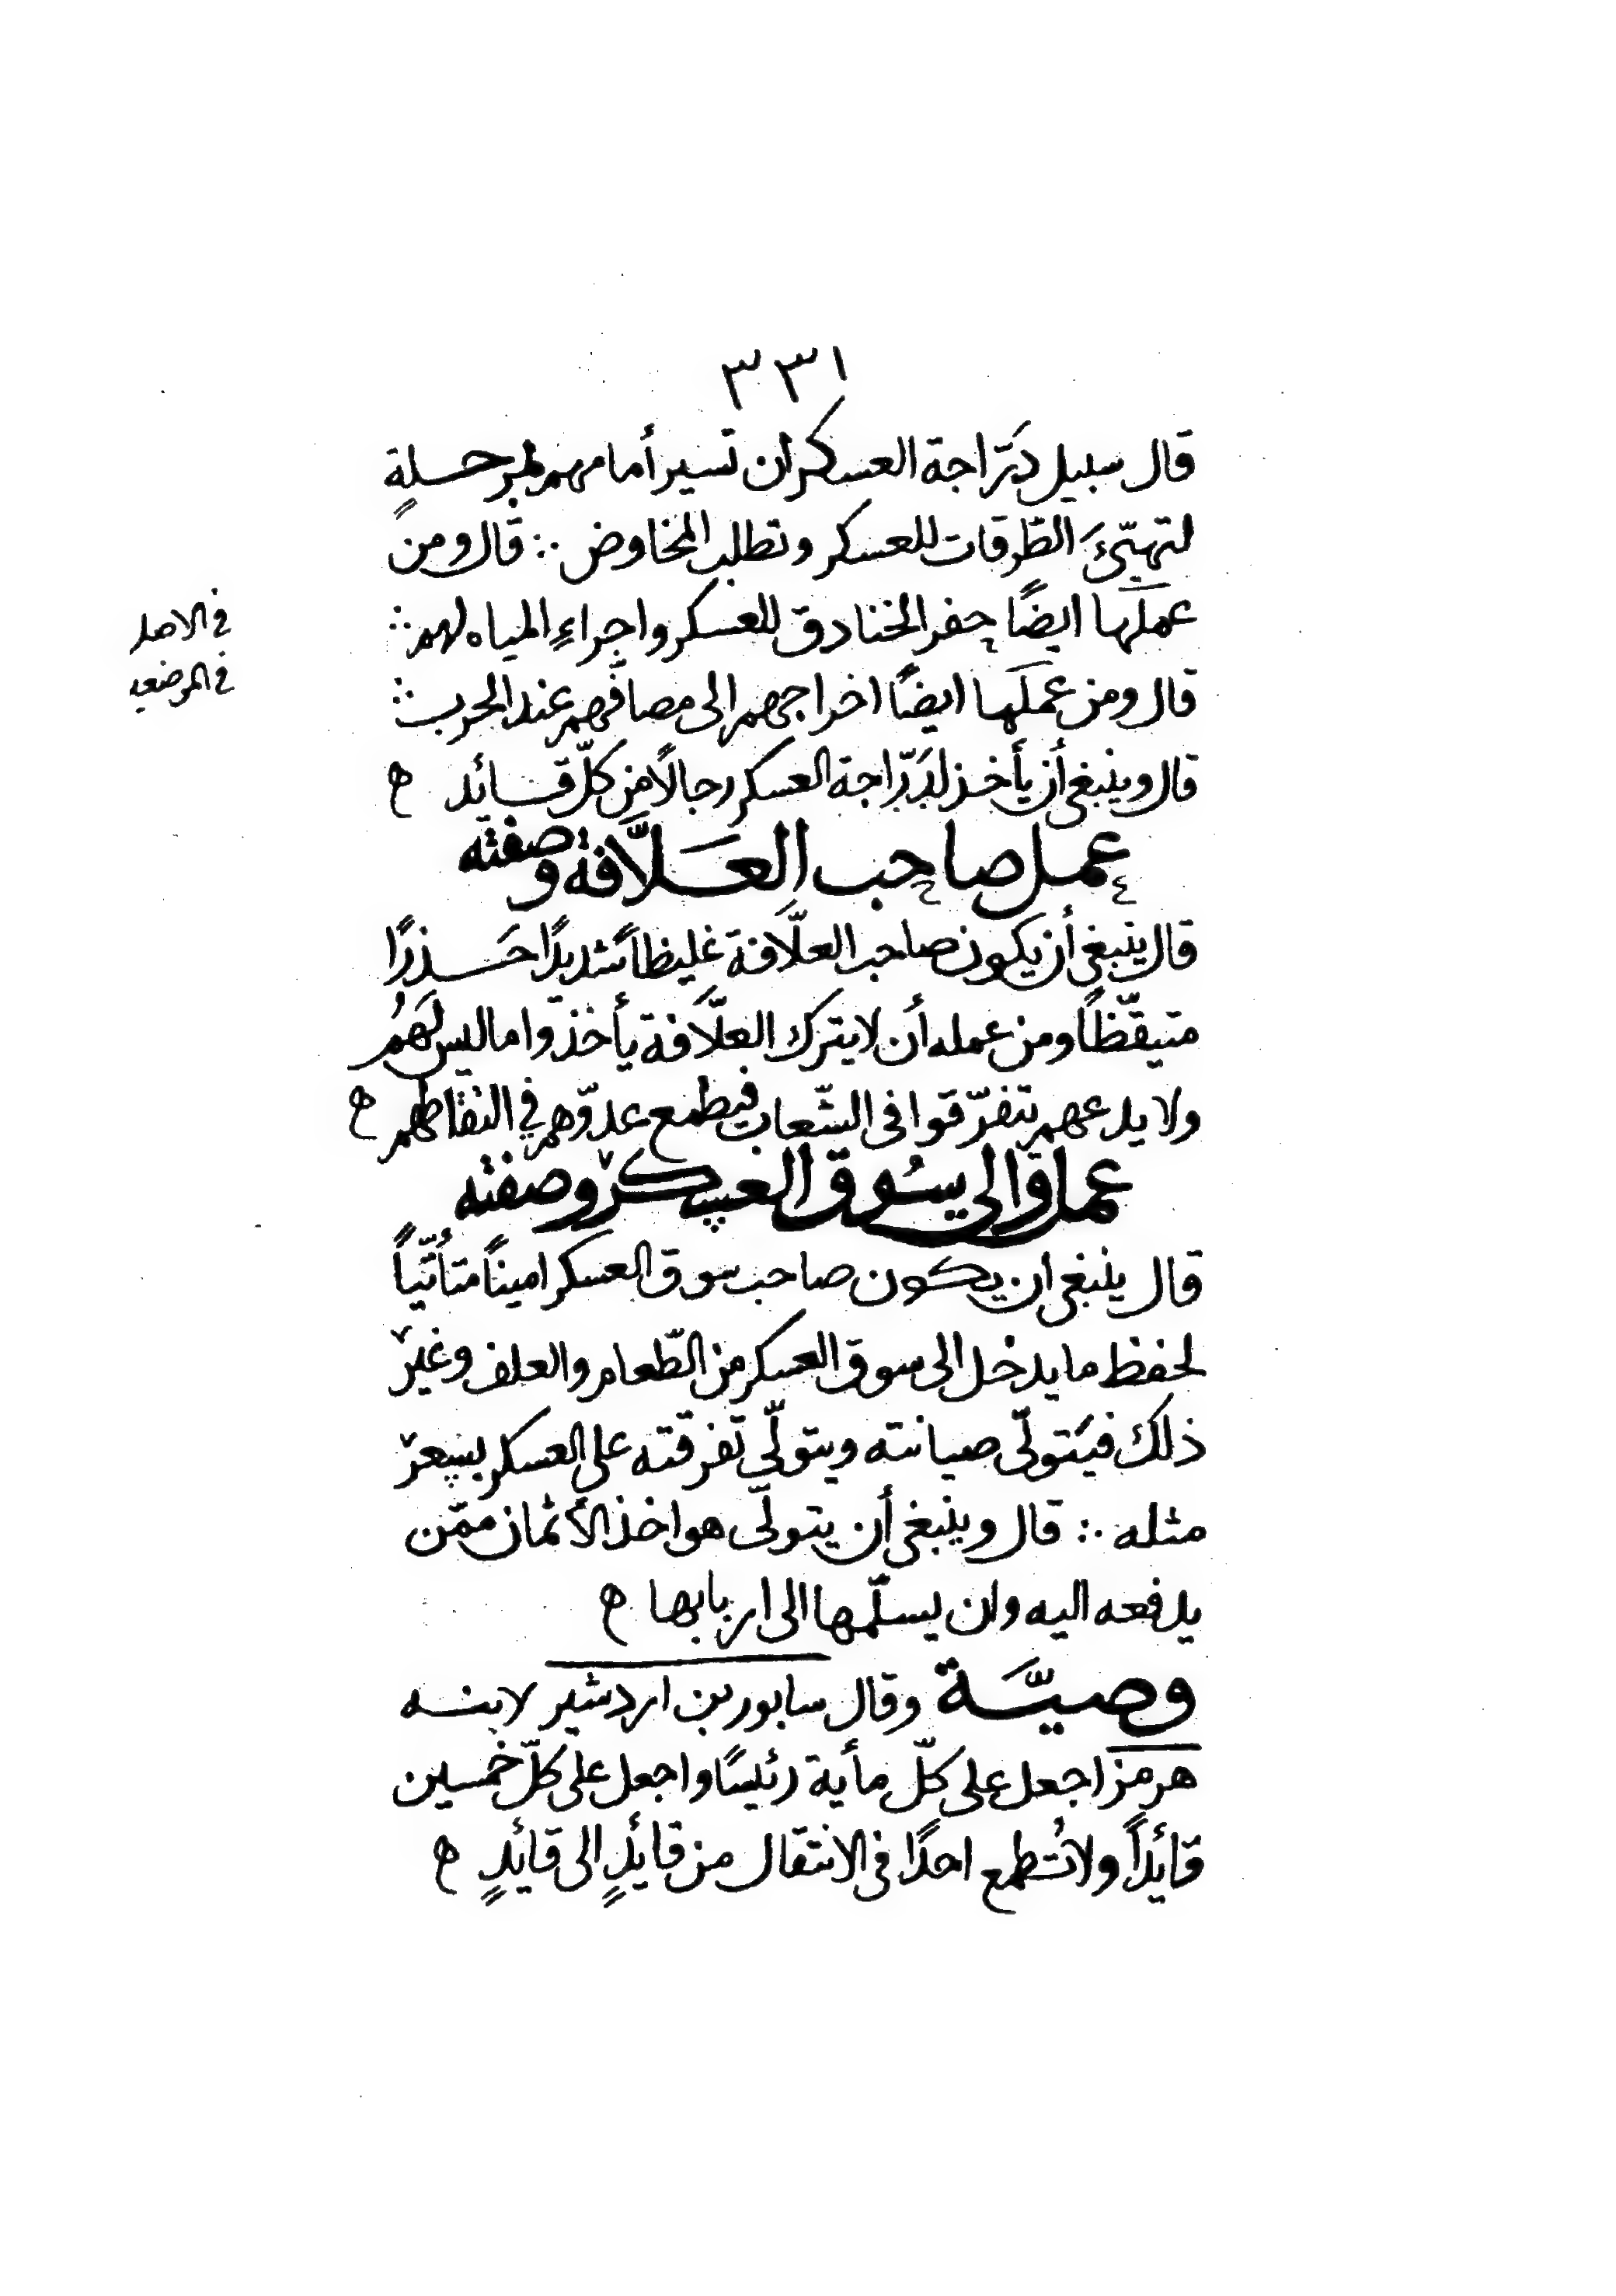 ٣٣١
قال سبيل دَرّاجة العسكر ان تسير أمامهم بمرحلةٍ
لتهيّئَ الطّرقات للعسكر وتطلب المخاوض ∴ قال ومن
عملها ايضًا حفر الخنادق للعسكر واجراءِ المياه لهم ∴
في الاصل
في الموضعين
قال ومن عملها ايضًا اخراجهم الى مصافّهم عند الحرب ∴
قال وينبغي أن يأخذ لدَرّاجة العسكر رجالًا من كلّ قائد ھ
عمل صاحب العَلاَّفة وصفته
قال ينبغي أن يكون صاحب العلّافة غليظاً شديدًا حَذرًا
متيقّظاً ومن عمله أن لا يترك العلّافة يأخذوا ما ليس لهَمُ
ولا يدعهم يتفرّقوا في الشّعاب فيطمع عدوّهم في التقاطهم ھ
عمل والي سُوق العسكر وصفته
قال ينبغي ان يكون صاحب سوق العسكر امينًا متأنّياً
لحفظ ما يدخل الى سوق العسكر من الطّعام والعلف وغير
ذلك فيَتولّى صيانته ويتولّى تفرقته على العسكر بسعر
مثله ∴ قال وينبغي أن يتولّى هو اخذ الأثمان ممّن
يدفعه اليه وان يسلّمها الى اربابها ھ
وصيَّة وقال سابور بن اردشير لابنه
هرمز اجعل على كلّ مأية رئيسًا واجعل على كلّ خمسين
قائداً ولا تُطمع احدًا في الانتقال من قائدٍ الى قائدٍ ھ